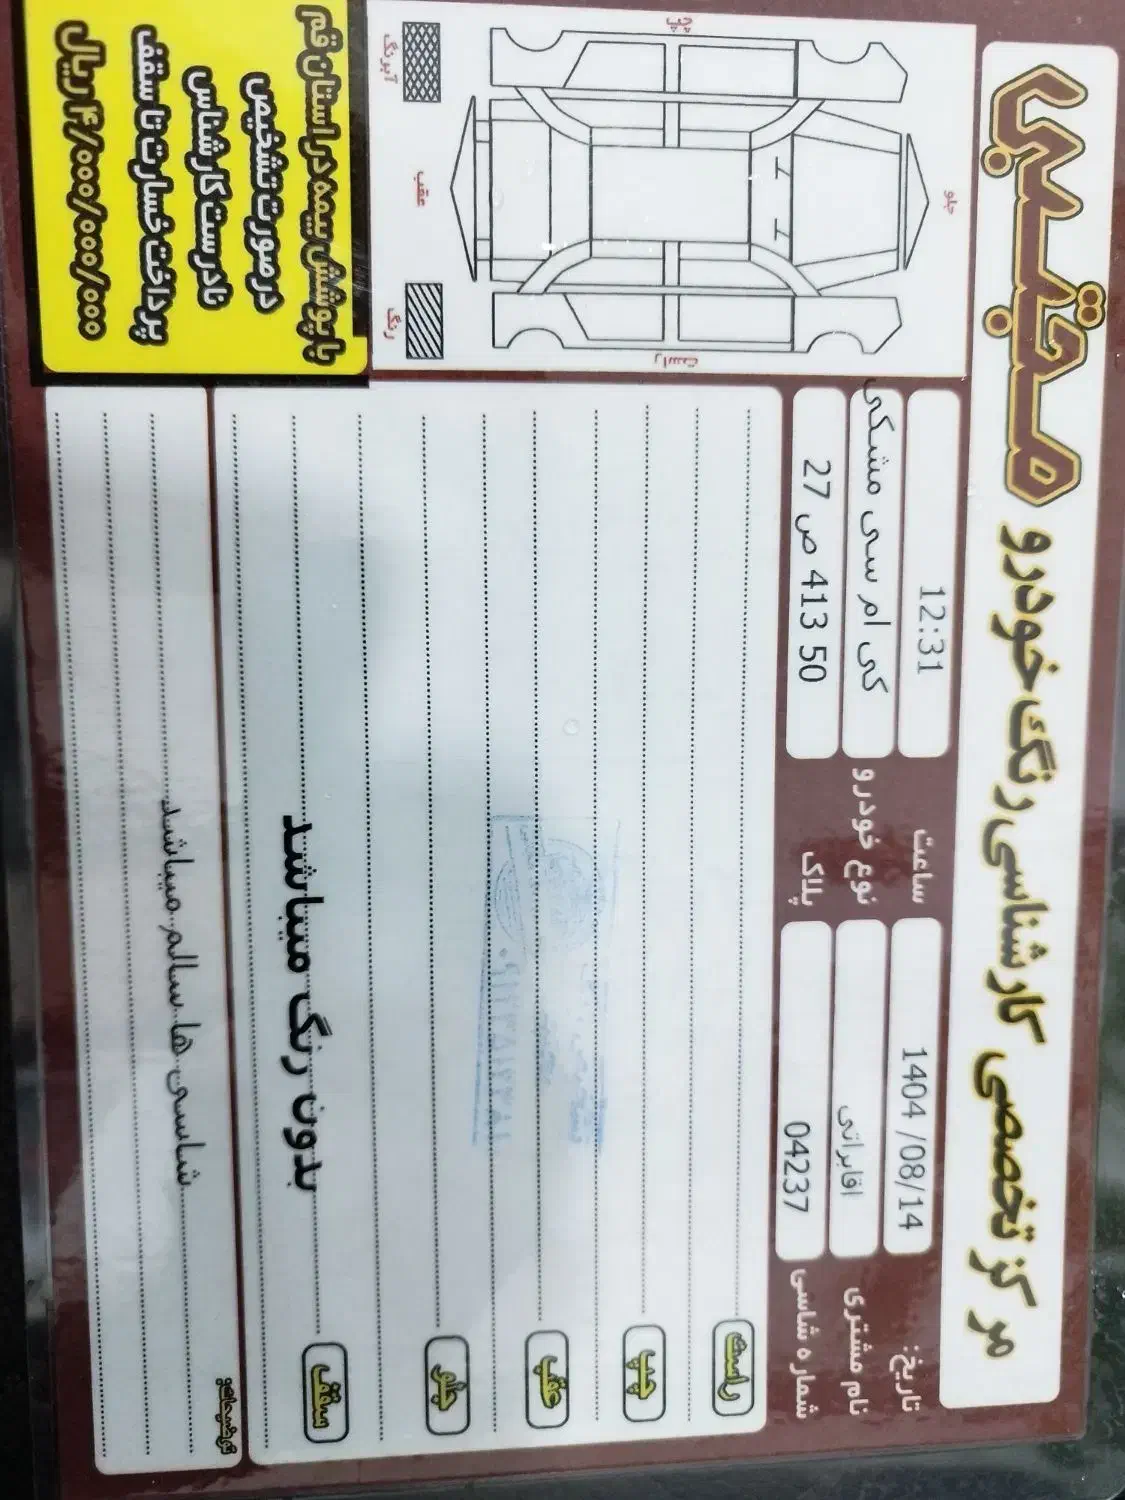 مرکز تخصصی کارشناسی رنگ خودرو مجتبی
تاریخ: 1404 /08/14 ساعت 12:31
نام مشتری اقابراتی نوع خودرو کی ام سی مشکی
شماره شاسی 04237 پلاک 27 ص 413 50
جلو
چپ
راست
عقب
آبرنگ
رنگ
با پوشش بیمه در استان قم
در صورت تشخیص
نادرست کارشناس
پرداخت خسارت تا سقف
۴/۰۰۰/۰۰۰/۰۰۰ ریال
راست
چپ
عقب
جلو
سقف
بدون رنگ میباشد
توضیحات:
شاسی ها سالم میباشد